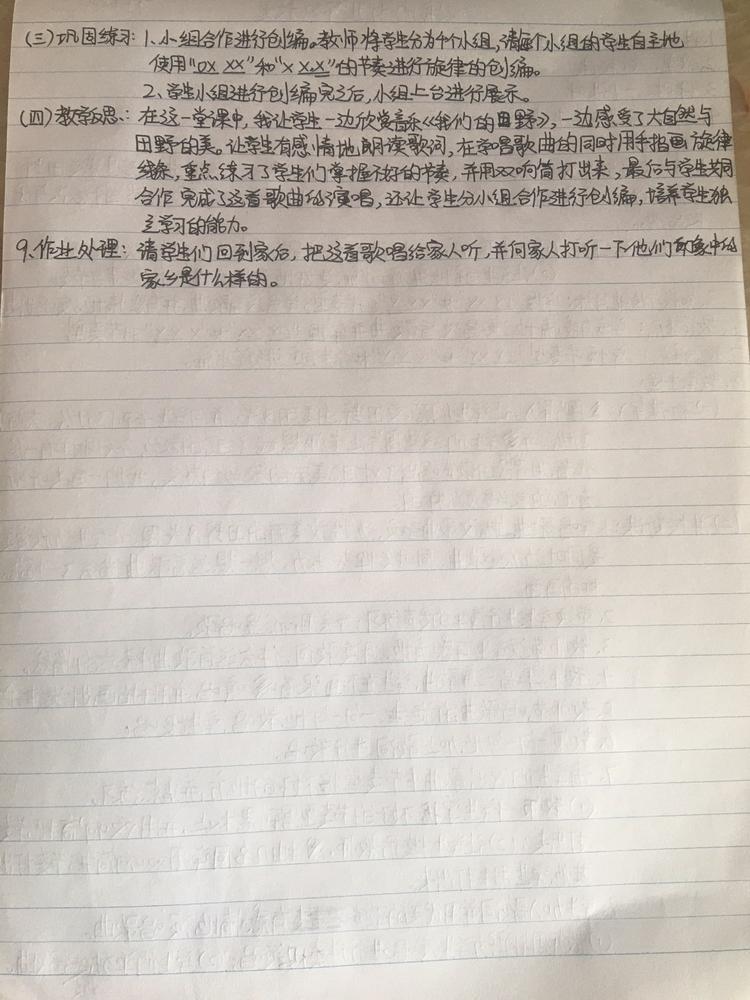 (三)巩固练习：1、小组合作进行创编。教师将学生分为4个小组，请每个小组的学生自主地
使用“0X XX”和“X X.X”的节奏进行旋律的创编。
2、学生小组进行创编完之后，小组上台进行展示。
(四)教学反思：在这一堂课中，我让学生一边欣赏音乐《我们的田野》，一边感受了大自然与
田野的美。让学生有感情地朗读歌词，在学唱歌曲的同时用手指画旋律
线条，重点练习了学生们掌握不好的节奏，并用双响筒打出来，最后与学生共同
合作完成了这首歌曲的演唱，还让学生分小组合作进行创编，培养学生独
立学习的能力。
9、作业处理：请学生们回到家后，把这首歌唱给家人听，并向家人打听一下他们印象中的
家乡是什么样的。